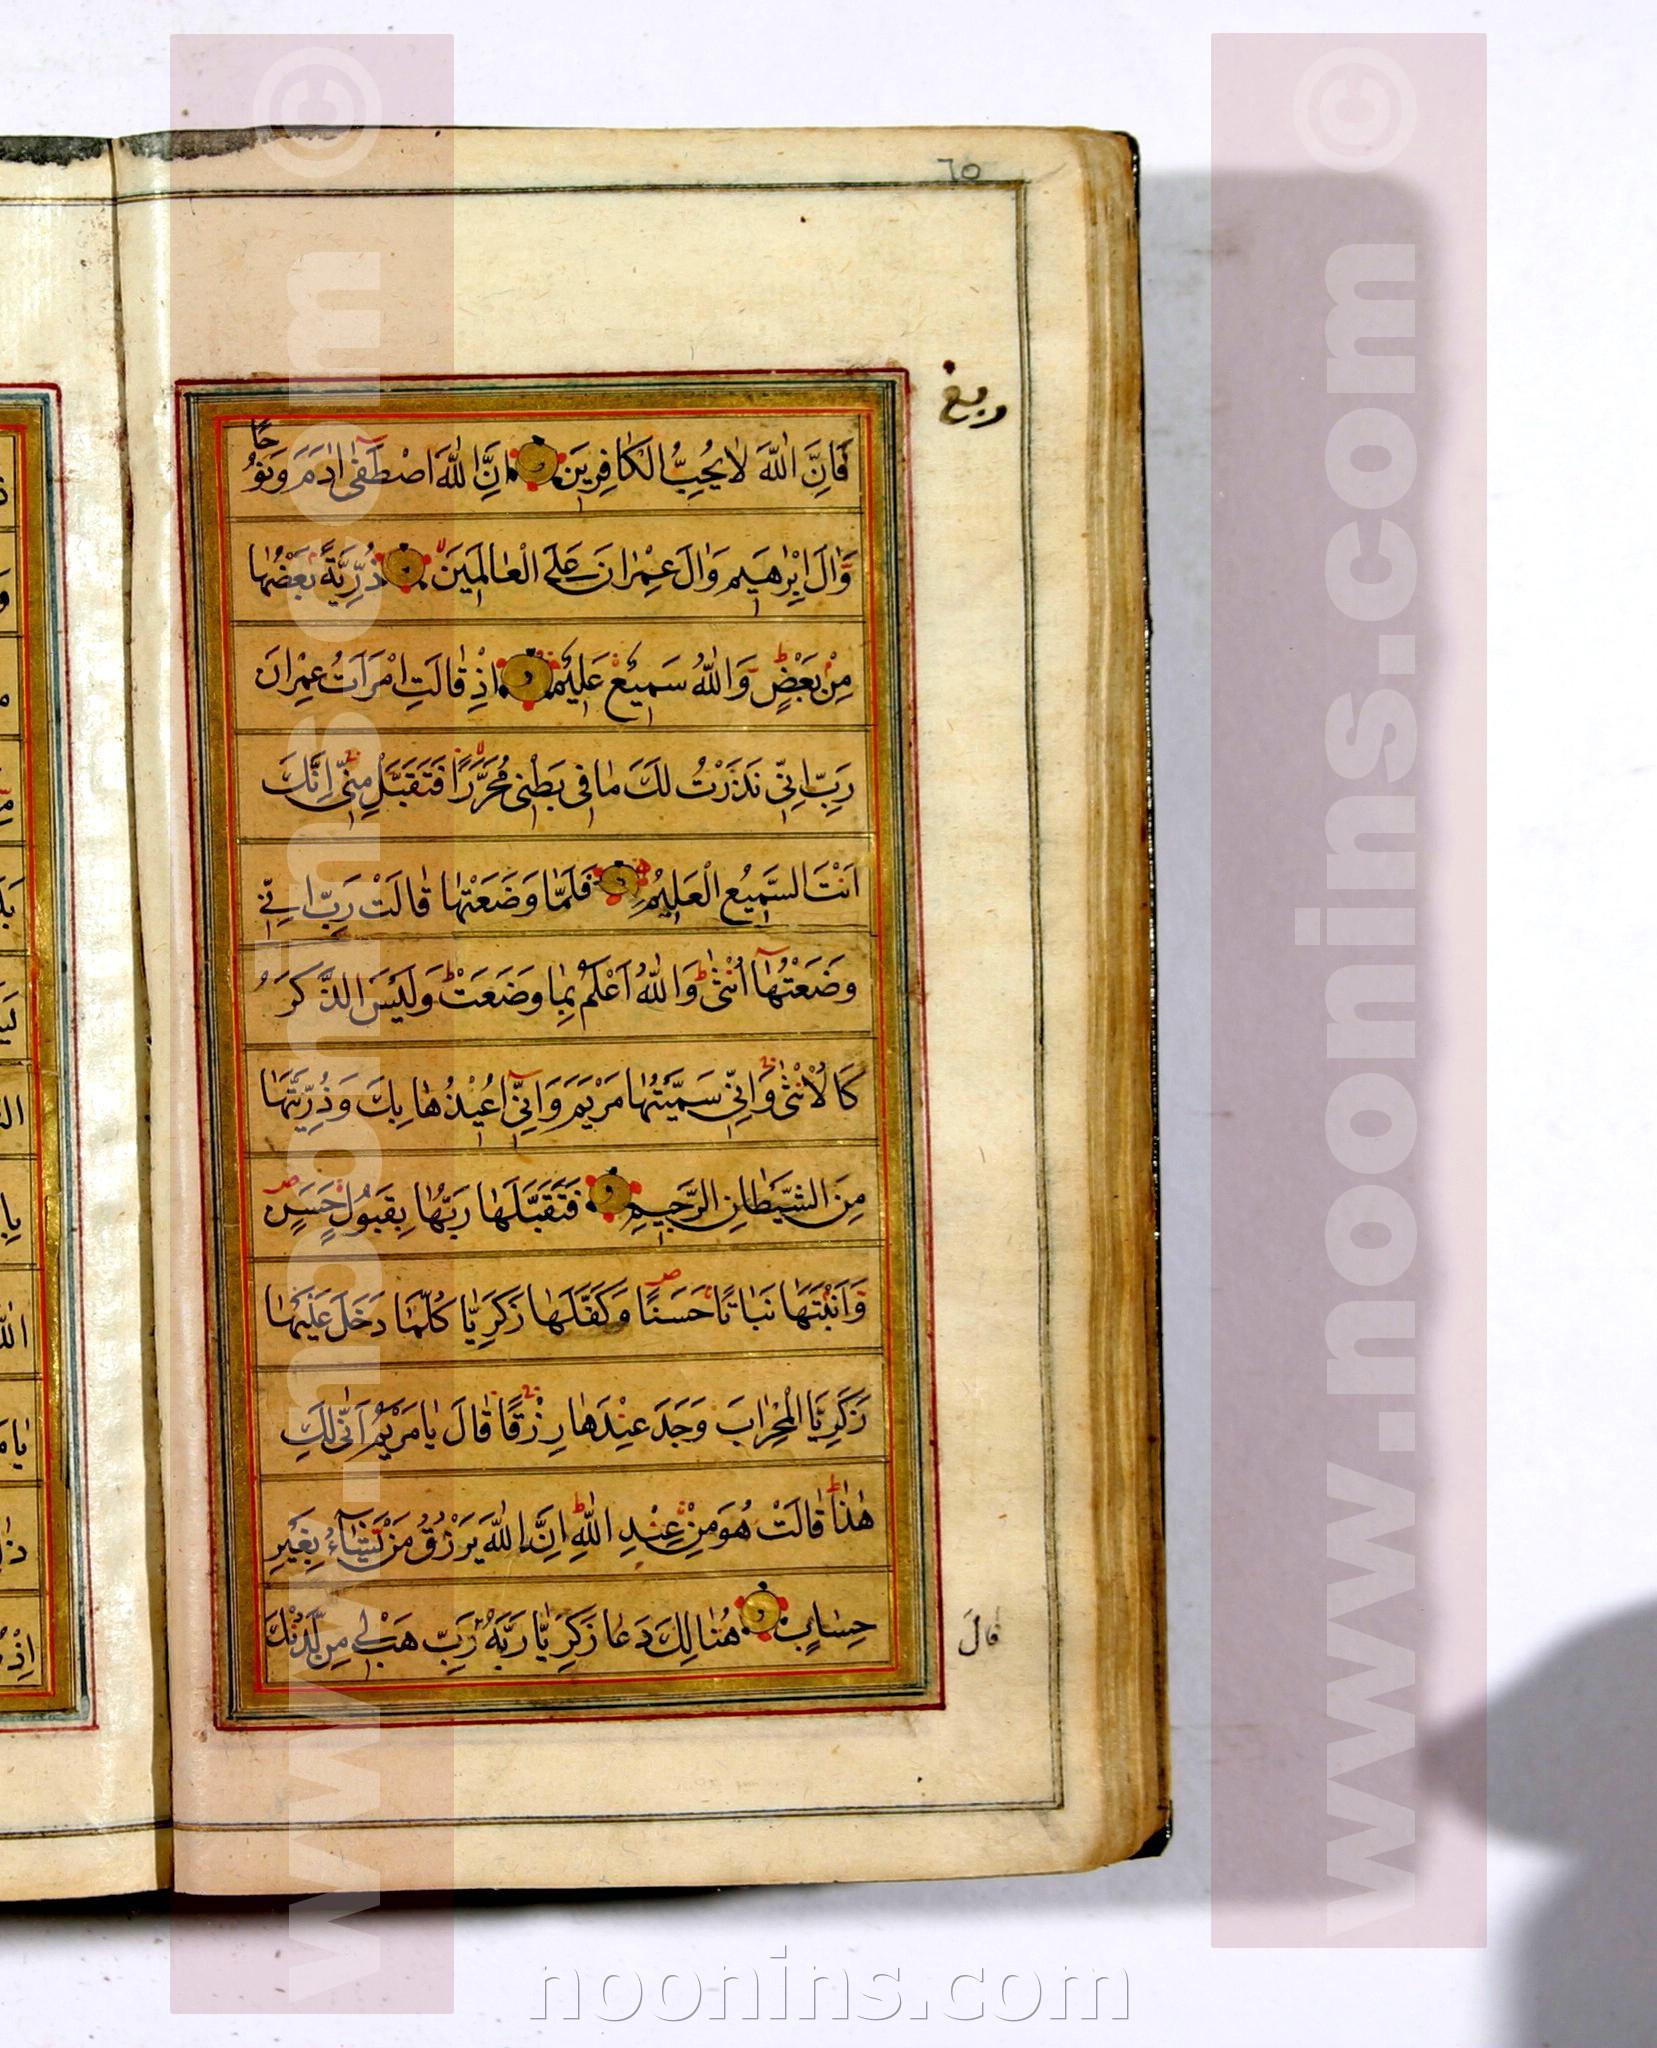 ٦٥
ربع
فَاِنَّ اللّٰهَ لٰا يُحِبُّ الْكٰافِرِينَ اِنَّ اللّٰهَ اصْطَفٰى اٰدَمَ وَنُوحًا
وَاٰلَ اِبْرٰهِيمَ وَاٰلَ عِمْرٰانَ عَلَى الْعٰالَمِينَ ذُرِّيَّةً بَعْضُهٰا
مِنْ بَعْضٍ وَاللّٰهُ سَمِيعٌ عَلِيمٌ اِذْ قٰالَتِ امْرَاَتُ عِمْرٰانَ
رَبِّ اِنِّي نَذَرْتُ لَكَ مٰا فِي بَطْنِي مُحَرَّرًا فَتَقَبَّلْ مِنِّي اِنَّكَ
اَنْتَ السَّمِيعُ الْعَلِيمُ فَلَمّٰا وَضَعَتْهٰا قٰالَتْ رَبِّ اِنِّي
وَضَعْتُهٰا اُنْثٰى وَاللّٰهُ اَعْلَمُ بِمٰا وَضَعَتْ وَلَيْسَ الذَّكَرُ
كَالْاُنْثٰى وَاِنِّي سَمَّيْتُهٰا مَرْيَمَ وَاِنِّي اُعِيذُهٰا بِكَ وَذُرِّيَّتَهٰا
مِنَ الشَّيْطٰانِ الرَّجِيمِ فَتَقَبَّلَهٰا رَبُّهٰا بِقَبُولٍ حَسَنٍ
وَاَنْبَتَهٰا نَبٰاتًا حَسَنًا وَكَفَّلَهٰا زَكَرِيّٰا كُلَّمٰا دَخَلَ عَلَيْهٰا
زَكَرِيَّا الْمِحْرٰابَ وَجَدَ عِنْدَهٰا رِزْقًا قٰالَ يٰا مَرْيَمُ اَنّٰى لَكِ
هٰذٰا قٰالَتْ هُوَ مِنْ عِنْدِ اللّٰهِ اِنَّ اللّٰهَ يَرْزُقُ مَنْ يَشٰآءُ بِغَيْرِ
حِسٰابٍ هُنٰالِكَ دَعٰا زَكَرِيّٰا رَبَّهُ رَبِّ هَبْ لِي مِنْ لَدُنْكَ
قالَ
www.noonins.com ©
www.noonins.com ©
noonins.com